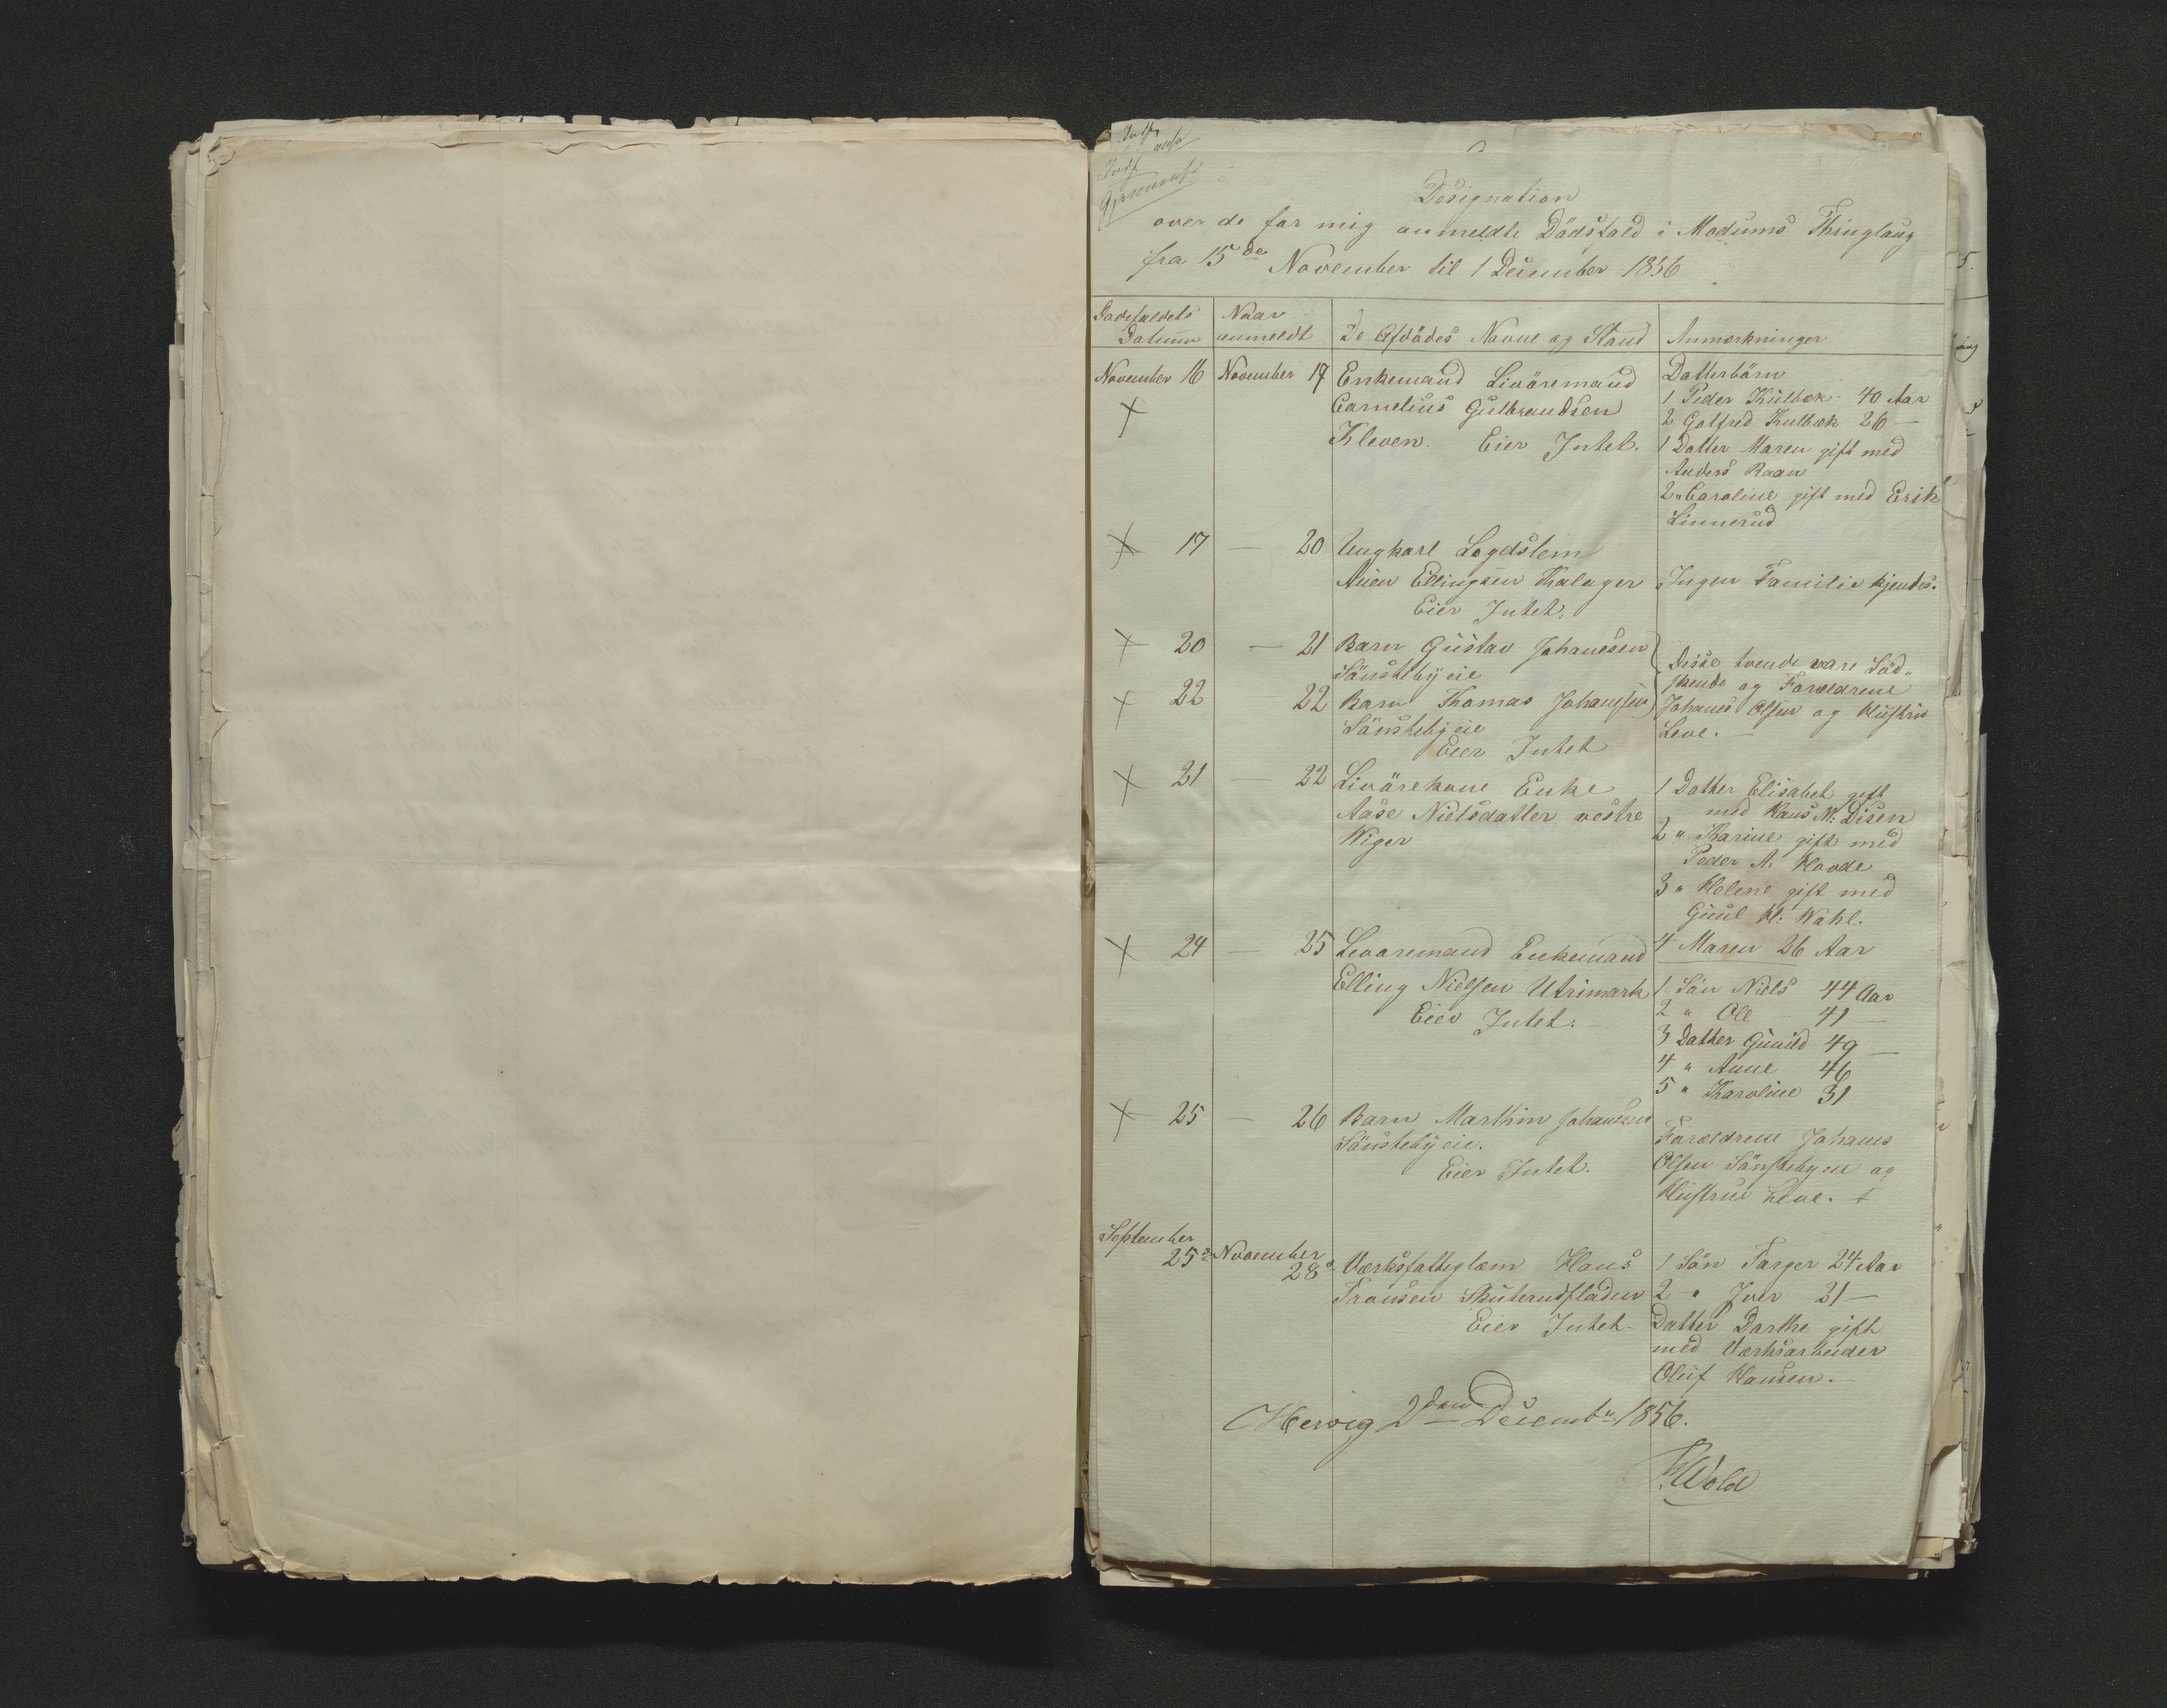 Designation
over de for mig anmeldte Dödsfald i Modums Thinglaug
fra 15de November til 1 December 1856
Dödsfaldets Datum
Naar anmeldt
De Afdödes Navne og Stand
Anmærkninger
November 16
November 17
Enkemand Livöremand
Cornelius Gulbrandsen
Kleven. Eier Intet.
Datterbörn
1 Peder Kulbæk 40 Aar
2 Gotfred Kulbæk 26 —
1 Datter Maren gift med
Anders Roan
2 " Caroline gift med Erik
Linnerud
17 — 20
Ungkarl Logdslem
Auen Ellingsen Kalager
Eier Intet.
Ingen Familie kjendes.
20 — 21
Barn Gustav Johanesen
Sönstebÿeie
22 22
Barn Thomas Johanesen
Sönstebÿeie
Eier Intet
Disse tvende vare Söd-
skende og Forældrene
Johanes Olsen og Hüstru
Leve. —
21 — 22
Livörekone Enke
Aase Nielsdatter vestre
Wiger
1 Datter Elisabet gift
med Hans N: Disen
2 " Karine gift med
Peder A. Hovde
3 " Helene gift med
Guul H: Wahl.
4 Maren 26 Aar
24 — 25
Levoremand Enkemand
Elling Nielsen Utrimark
Eier Intet. —
1 Sön Niels 44 Aar
2 " Ole — 41 —
3 Datter Gunild 49 —
4 " Anne 46
5 " Karoline 31
25 — 26
Barn Marthin Johansen
Sönstebÿeie.
Eier Intet.
Forældrene Johanes
Olsen Sönstebyeie og
Hustrue Leve.
September
25de
November
28de
Værksfattiglem Hans
Fransen Skuterudfladen
Eier Intet —
1 Sön Torger 24 Aar
2 " Iver 21 —
Datter Dorthe gift
med Værksarbeider
Oluf Hansen. —
Hervig 2den Decembr 1856.
H Wold